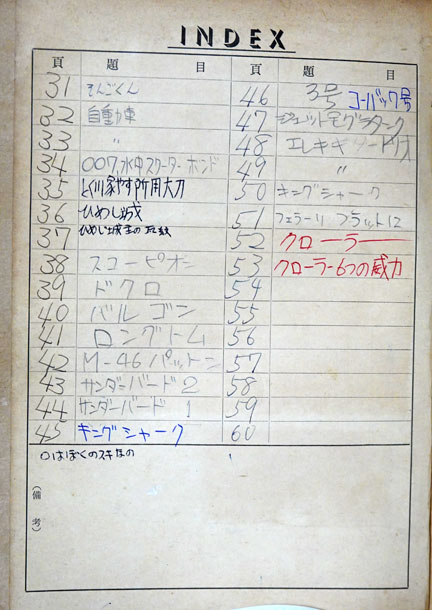 INDEX
頁 題 目
31 まんごくん
32 自動車
33 〃
34 007,水中スクーター ボンド
35 とく川家やす所用大刀
36 ひめじ城
37 ひめじ城主の
38 スコーピオン
39 ドクロ
40 バルゴン
41 ロングトム
42 M-46パットン
43 サンダーバード2
44 サンダーバード 1
45 キングシャーク
頁 題 目
46 3号 コーバック号
47 ジェットモグラタンク
48 エレキギター
49 〃
50 キングシャーク
51 フェラーリ フラット12
52 クローラー
53 クローラー6つの威力
54
55
56
57
58
59
60
(備考)
○はぼくのスキなの